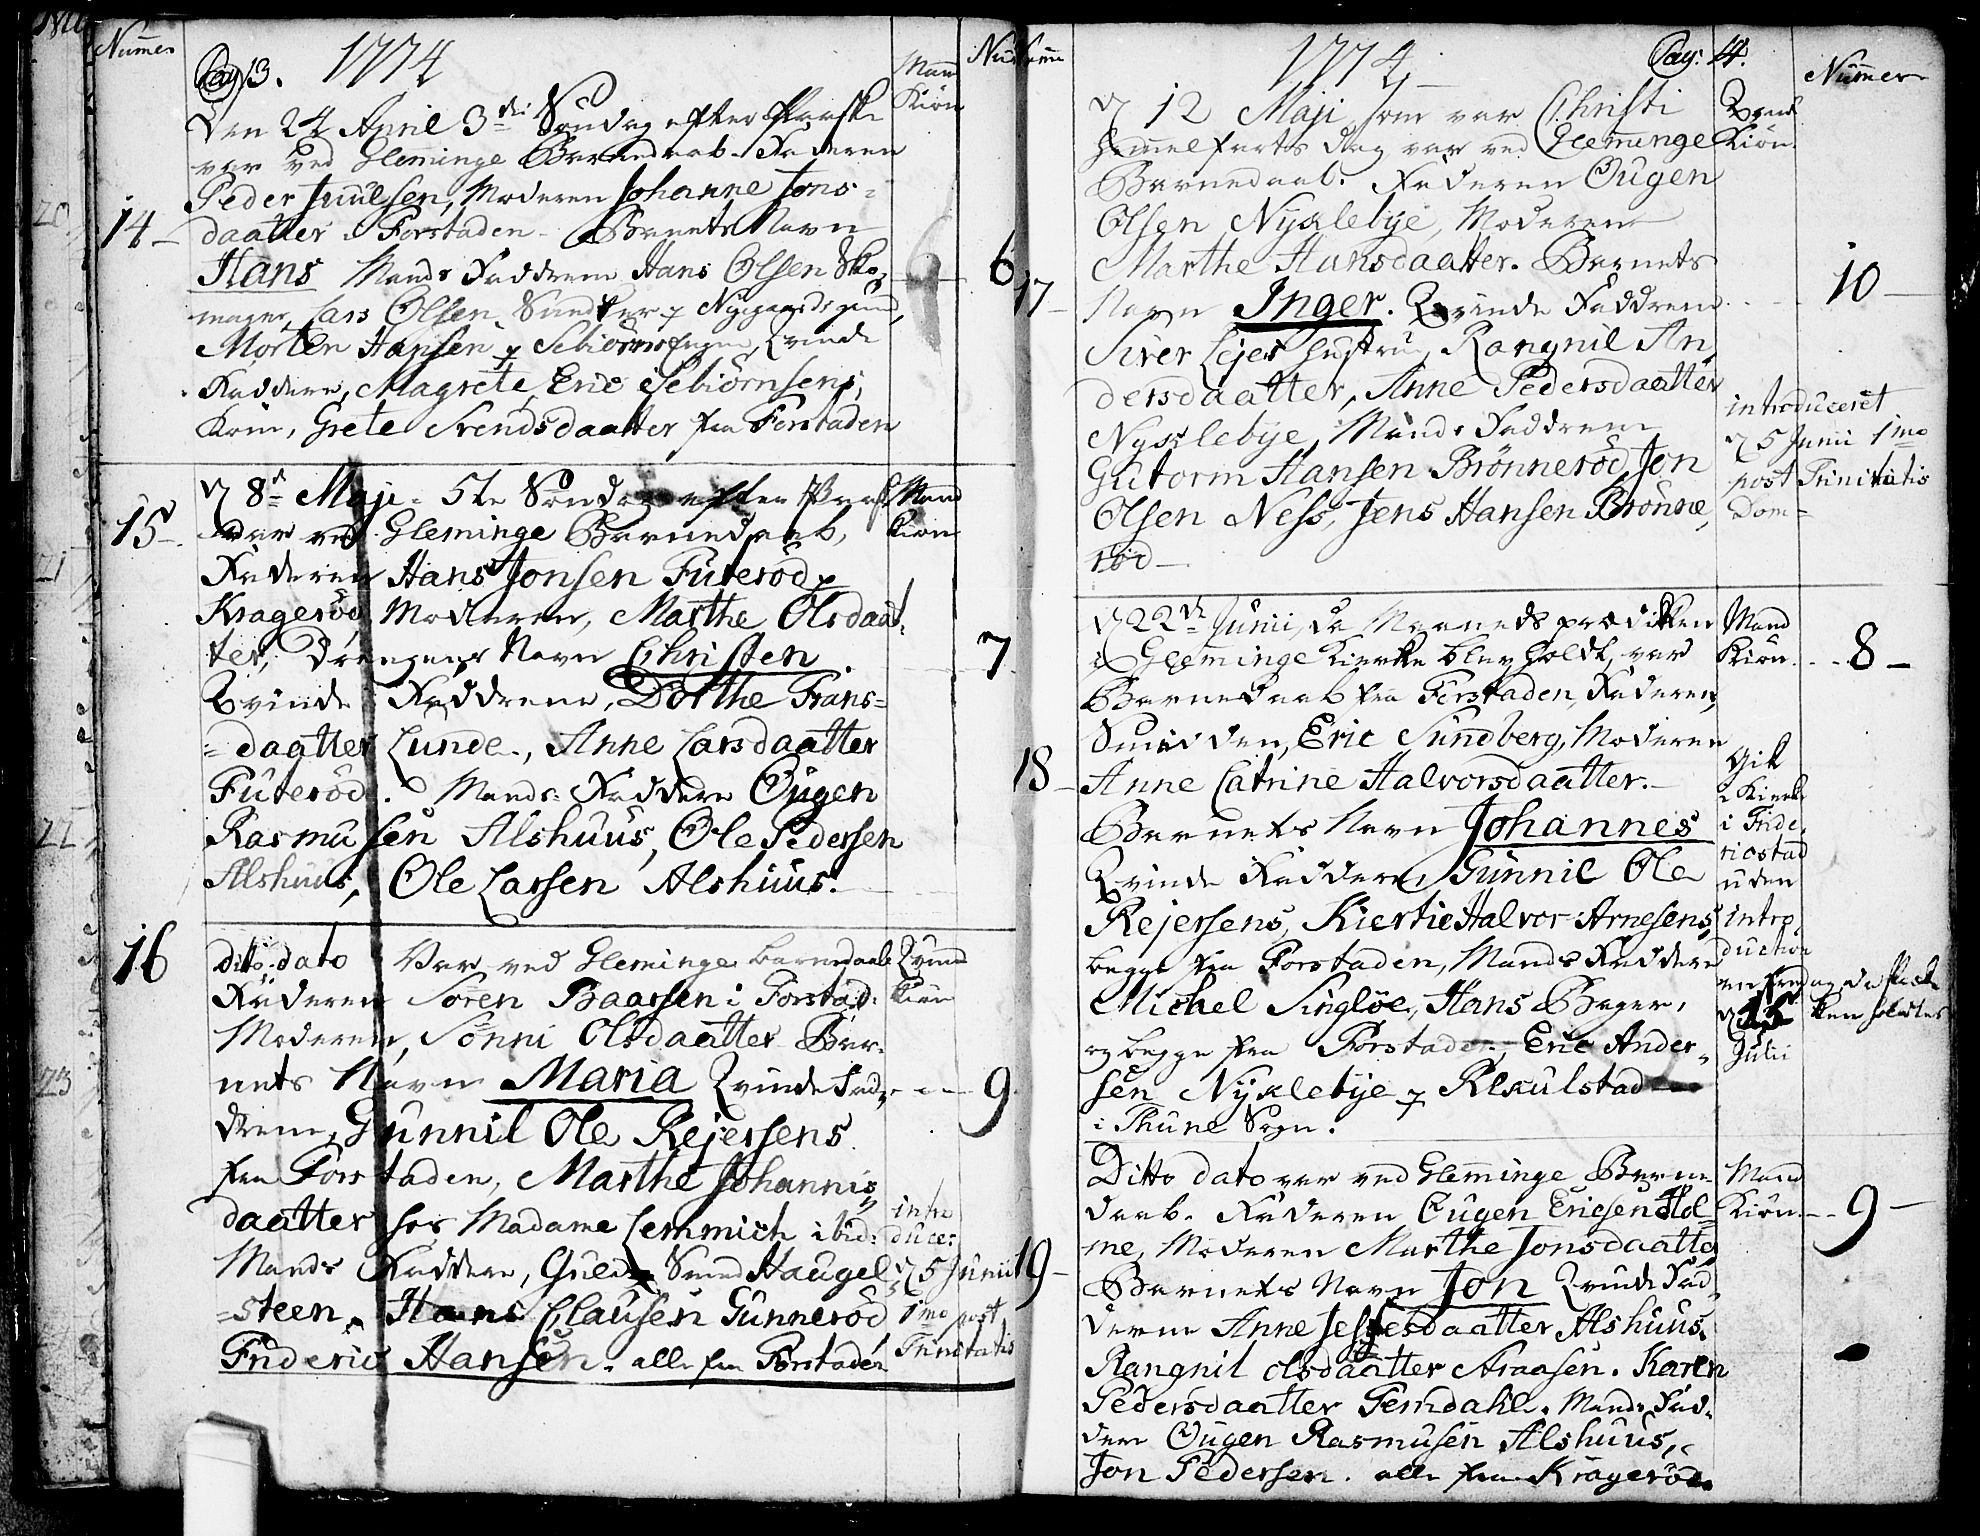 Nummer
Pag 3. 1774
Mand
Kiön
Den 24 April 3die Søndag efter Paaske
var ved Gleminge Barnedaab. Faderen
Peder Juulsen, Moderen Johanne Jons-
14 - daatter i Forstaden - Barnets Navn
Hans Mands Fadderne Hans Olsen Sko- 6
mager, Lars Olsen Sundker paa Nygaards grund,
Morten Hansen paa Sebiörns Engen, Qvinde
Faddere, Magrete Eric Sebiörnsens,
Kone, Grete Svendsdaatter fra Forstaden
d 8de Maji 5te Søndag efter Paaske Mand
15 - var ved Gleminge Barnedaab, Kiön
Faderen Hans Jonsen Futeröd paa
Kragerö, Moderen, Marthe Olsdaat-
ter, Drengens Navn Christen. 7
Qvinde Fadderne, Dorthe Frans=
=daatter Lunde., Anne Larsdaatter
Futeröd. Mands Faddere Ougen
Rasmusen Alshuus, Ole Pedersen
Alshuus, Ole Larsen Alshuus.
16 ditto dato Var ved Gleminge barnedaab Qvind
Faderen Sören Baarsen i Forstad: Kiön
Moderen, Sönni Olsdaatter Bar-
nets Navn Maria Qvinde Fad- 9
derne, Gunnil Ole Rejersens
fra Forstaden, Marthe Johannis
daatter hos Madame Lemmich ibid:
Mands Faddere, Smed Haugel
=steen, Hans Clausen Gunneröd
Frideric Hansen. alle fra Forstaden
duce:
d 5 Junii
1mo post
Trinitatis
1774 Pag: 4.
Nummer
d 12 Maji som var Christi Qvind
Himmelfarts Dag var ved Glemminge Kiön.
Barnedaab. Faderen Ougen
Olsen Nyxlebye, Moderen
Marthe Hansdaatter. Barnets
17 - Navn Inger. Qvinde Fadderne 10 -
Siver Lejes Hustru, Rangnil An
dersdaatter, Anne Pedersdaatter
Nyxlebye, Mands Fadderne
Gutorm Hansen Brönneröd, Jon
Olsen Ness, Jens Hansen Brönne,
röd -
introduceret
d 5 Junii 1mo
post Trinitatis
Dom-
d 22de Junii, da Maaneds prædiken Mand
i Gleminge Kierke blev holdt, var Kiön. - - 8 -
Barnedaab fra Forstaden, Faderen,
Smidden, Eric Sundberg, Moderen
18 - Anne Catrine Halvorsdaatter. -
Barnets Navn Johannes
Qvinde Faddere, Gunnil Ole
Rejersens, Kiertie Halvor Arnesens,
begge fra Forstaden, Mands Faddere
Michel Singlöe, Hans Bager,
og begge fra Forstaden, Eric Ander-
sen Nyxlebye paa Rkaulstad
i Thune Sogn.
Gik
i Kierke
i Fride,
ricstad
uden
intro
duction
Julii
Ditto dato var ved Gleminge Barne Mand
daab. Faderen Ougen Ericsen Hol- Kiön. - - 9 -
me, Moderen Marthe Jonsdaatter
19 - Barnets Navn Jon Qvinde Fad-
derne Anne Jespersdaatter Alshuus.
Rangnil Olsdaatter Araasen. Karen
Pedersdaatter Femdahl. Mands Fad-
dere Ougen Rasmusen Alshuus,
Jon Pedersen. alle fra Krageröd.